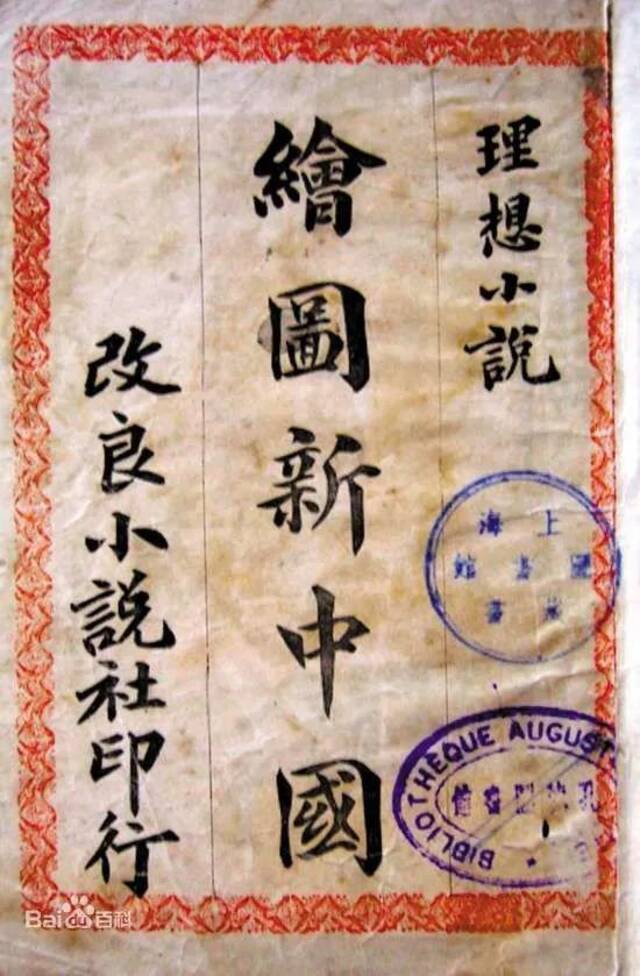 理想小說
繪圖新中國
改良小說社印行
上海
圖書館
藏書
BIBLIOTHÈQUE AUGUST
Bai du 百科